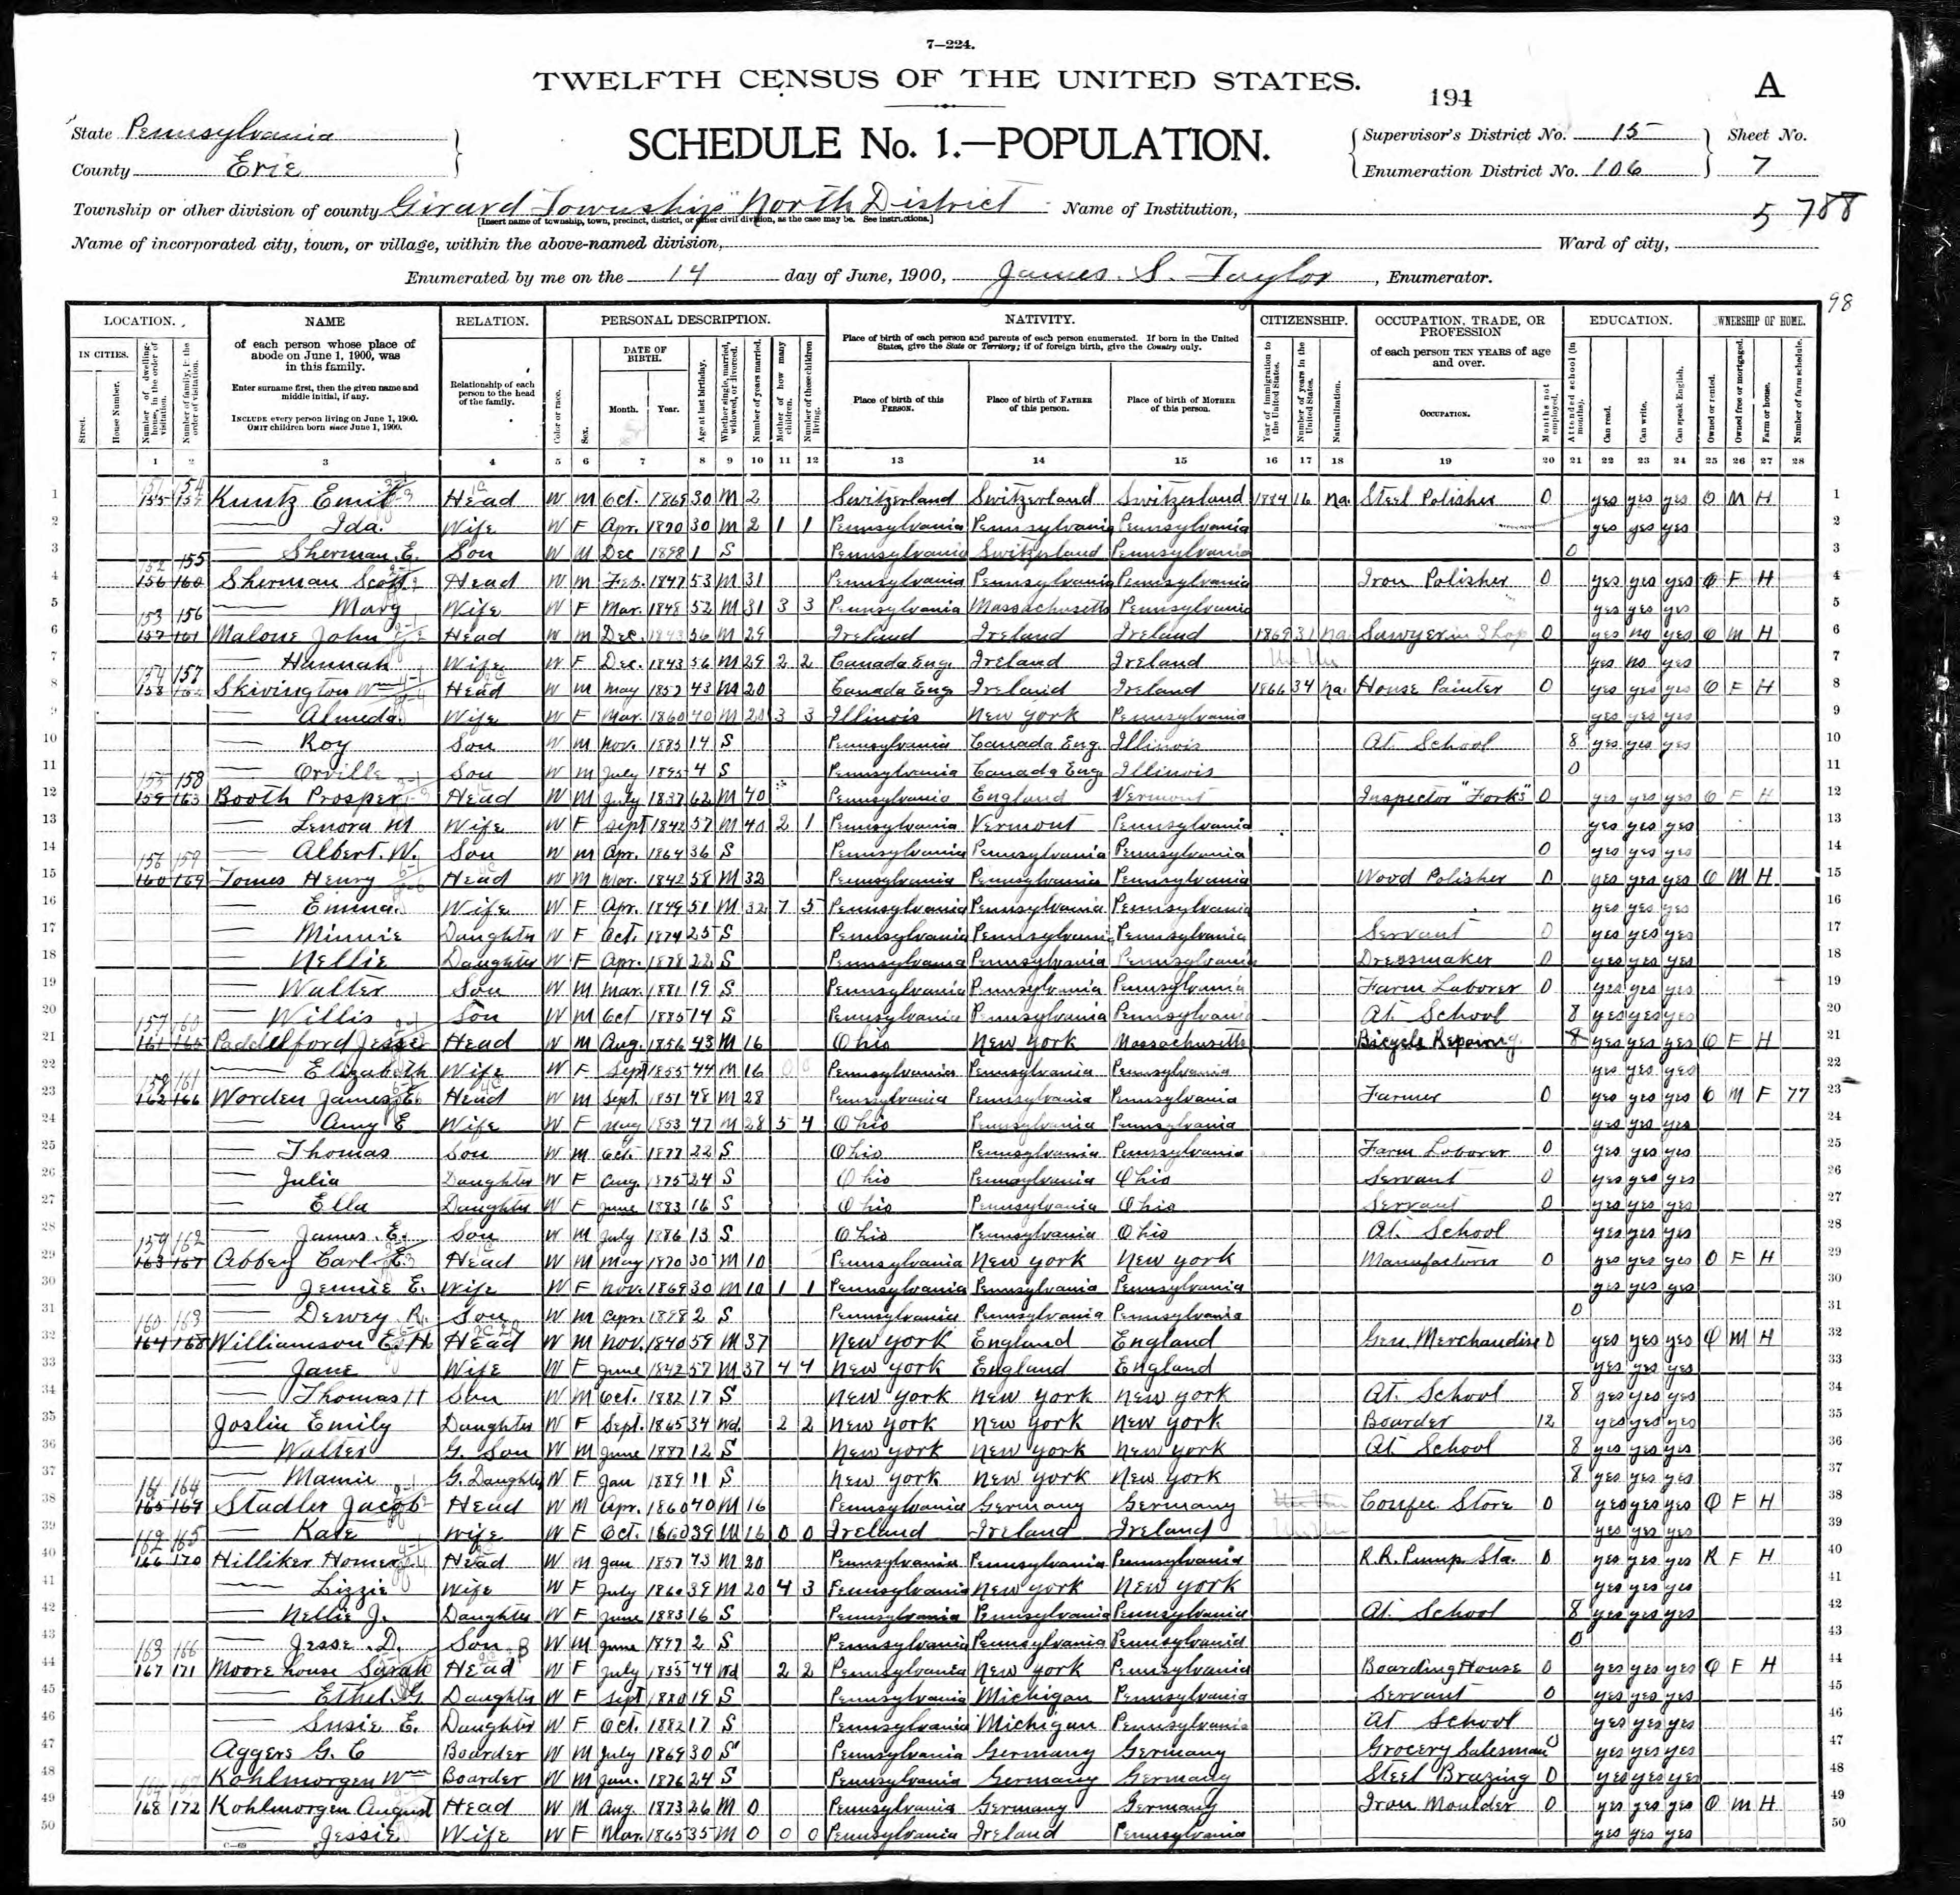 7—224.
TWELFTH CENSUS OF THE UNITED STATES.
194
A
State Pennsylvania
County Erie
SCHEDULE No. 1.—POPULATION.
Supervisor's District No. 15
Enumeration District No. 106
Sheet No.
7
Township or other division of county Girard Township "North District Name of Institution,
5 788
[Insert name of township, town, precinct, district, or other civil division, as the case may be. See instructions.]
Name of incorporated city, town, or village, within the above-named division, Ward of city,
Enumerated by me on the 14 day of June, 1900, James S. Taylor, Enumerator.
98
LOCATION. NAME RELATION. PERSONAL DESCRIPTION. NATIVITY. CITIZENSHIP. OCCUPATION, TRADE, OR PROFESSION EDUCATION. OWNERSHIP OF HOME.
IN CITIES. Street. House Number. Number of dwelling-house, in the order of visitation. Number of family, in the order of visitation.
of each person whose place of abode on June 1, 1900, was in this family.
Enter surname first, then the given name and middle initial, if any.
INCLUDE every person living on June 1, 1900.
OMIT children born since June 1, 1900.
Relationship of each person to the head of the family.
Color or race. Sex. DATE OF BIRTH. Month. Year. Age at last birthday. Whether single, married, widowed, or divorced. Number of years married. Mother of how many children. Number of these children living.
Place of birth of each person and parents of each person enumerated. If born in the United States, give the State or Territory; if of foreign birth, give the Country only.
Place of birth of this PERSON. Place of birth of FATHER of this person. Place of birth of MOTHER of this person.
Year of immigration to the United States. Number of years in the United States. Naturalization.
of each person TEN YEARS of age and over.
OCCUPATION. Months not employed.
Attended school (in months). Can read. Can write. Can speak English.
Owned or rented. Owned free or mortgaged. Farm or house. Number of farm schedule.
1 2 3 4 5 6 7 8 9 10 11 12 13 14 15 16 17 18 19 20 21 22 23 24 25 26 27 28
1 155 Kuntz Emil Head W M Oct. 1869 30 M 2 Switzerland Switzerland Switzerland 1884 16 Na Steel Polisher 0 yes yes yes O M H 1
2 — Ida Wife W F Apr. 1870 30 M 2 1 1 Pennsylvania Pennsylvania Pennsylvania yes yes yes 2
3 — Sherman E. Son W M Dec 1898 1 S Pennsylvania Switzerland Pennsylvania 0 3
152 155
4 156 160 Sherman Scott Head W M Feb. 1847 53 M 31 Pennsylvania Pennsylvania Pennsylvania Iron Polisher 0 yes yes yes O F H 4
5 — Mary Wife W F Mar. 1848 52 M 31 3 3 Pennsylvania Massachusetts Pennsylvania yes yes yes 5
153 156
6 157 161 Malone John Head W M Dec. 1843 56 M 29 Ireland Ireland Ireland 1869 31 Na Sawyer in Shop 0 yes no yes O M H 6
7 — Hannah Wife W F Dec. 1843 56 M 29 2 2 Canada Eng. Ireland Ireland Un Un yes no yes 7
154 157
8 158 162 Skivington Wm Head W M May 1857 43 M 20 Canada Eng Ireland Ireland 1866 34 Na House Painter 0 yes yes yes O F H 8
9 — Almeda Wife W F Mar. 1860 40 M 20 3 3 Illinois New York Pennsylvania yes yes yes 9
10 — Roy Son W M Nov. 1885 14 S Pennsylvania Canada Eng. Illinois At School 8 yes yes yes 10
11 — Orville Son W M July 1895 4 S Pennsylvania Canada Eng Illinois 0 11
155 158
12 159 163 Booth Prosper Head W M July 1837 62 M 40 Pennsylvania England Vermont Inspector "Forks" 0 yes yes yes O F H 12
13 — Lenora M Wife W F Sept 1842 57 M 40 2 1 Pennsylvania Vermont Pennsylvania yes yes yes 13
14 — Albert W. Son W M Apr. 1864 36 S Pennsylvania Pennsylvania Pennsylvania 0 yes yes yes 14
156 159
15 160 164 Tomes Henry Head W M Mar. 1842 58 M 32 Pennsylvania Pennsylvania Pennsylvania Wood Polisher 0 yes yes yes O M H 15
16 — Emma Wife W F Apr. 1849 51 M 32 7 5 Pennsylvania Pennsylvania Pennsylvania yes yes yes 16
17 — Minnie Daughter W F Oct. 1874 25 S Pennsylvania Pennsylvania Pennsylvania Servant 0 yes yes yes 17
18 — Nellie Daughter W F Apr. 1878 22 S Pennsylvania Pennsylvania Pennsylvania Dressmaker 0 yes yes yes 18
19 — Walter Son W M Mar. 1881 19 S Pennsylvania Pennsylvania Pennsylvania Farm Laborer 0 yes yes yes 19
20 — Willis Son W M Oct 1885 14 S Pennsylvania Pennsylvania Pennsylvania At School 8 yes yes yes 20
157 160
21 161 165 Paddelford Jesse Head W M Aug. 1856 43 M 16 Ohio New York Massachusetts Bicycle Repairing 8 yes yes yes O F H 21
22 — Elizabeth Wife W F Sept 1855 44 M 16 0 0 Pennsylvania Pennsylvania Pennsylvania yes yes yes 22
158 161
23 162 166 Worden James E. Head W M Sept. 1851 48 M 28 Pennsylvania Pennsylvania Pennsylvania Farmer 0 yes yes yes O M F 77 23
24 — Amy E Wife W F May 1853 47 M 28 5 4 Ohio Pennsylvania Pennsylvania yes yes yes 24
25 — Thomas Son W M Oct. 1877 22 S Ohio Pennsylvania Pennsylvania Farm Laborer 0 yes yes yes 25
26 — Julia Daughter W F Aug. 1875 24 S Ohio Pennsylvania Ohio Servant 0 yes yes yes 26
27 — Ella Daughter W F June 1883 16 S Ohio Pennsylvania Ohio Servant 0 yes yes yes 27
28 — James E. Son W M July 1886 13 S Ohio Pennsylvania Ohio At School yes yes yes 28
159 162
29 163 167 Abbey Carl E. Head W M May 1870 30 M 10 Pennsylvania New York New York Manufacturer 0 yes yes yes O F H 29
30 — Jennie E. Wife W F Nov. 1869 30 M 10 1 1 Pennsylvania Pennsylvania Pennsylvania yes yes yes 30
31 — Dewey R. Son W M Apr. 1898 2 S Pennsylvania Pennsylvania Pennsylvania 0 31
160 163
32 164 168 Williamson E. H. Head W M Nov. 1840 59 M 37 New York England England Gen. Merchandise 0 yes yes yes O M H 32
33 — Jane Wife W F June 1842 57 M 37 4 4 New York England England yes yes yes 33
34 — Thomas H Son W M Oct. 1882 17 S New York New York New York At School 8 yes yes yes 34
35 Joslin Emily Daughter W F Sept. 1865 34 Wd. 2 2 New York New York New York Boarder 12 yes yes yes 35
36 — Walter G. Son W M June 1887 12 S New York New York New York At School 8 yes yes yes 36
37 — Mamie G. Daughter W F Jan 1889 11 S New York New York New York 8 yes yes yes 37
161 164
38 165 169 Stadler Jacob Head W M Apr. 1860 40 M 16 Pennsylvania Germany Germany Confec. Store 0 yes yes yes O F H 38
39 — Kate Wife W F Oct. 1860 39 M 16 0 0 Ireland Ireland Ireland yes yes yes 39
162 165
40 166 170 Hilliker Homer Head W M Jan 1857 43 M 20 Pennsylvania Pennsylvania Pennsylvania R.R. Pump Sta. 0 yes yes yes R F H 40
41 — Lizzie Wife W F July 1860 39 M 20 4 3 Pennsylvania New York New York yes yes yes 41
42 — Nellie J. Daughter W F June 1883 16 S Pennsylvania Pennsylvania Pennsylvania At School 8 yes yes yes 42
43 — Jesse D. Son W M June 1897 2 S Pennsylvania Pennsylvania Pennsylvania 0 43
163 166
44 167 171 Moorehouse Sarah Head W F July 1855 44 Wd 2 2 Pennsylvania New York Pennsylvania Boarding House 0 yes yes yes O F H 44
45 — Ethel G. Daughter W F Sept 1880 19 S Pennsylvania Michigan Pennsylvania Servant 0 yes yes yes 45
46 — Susie E. Daughter W F Oct. 1882 17 S Pennsylvania Michigan Pennsylvania At School yes yes yes 46
47 Aggers G. C Boarder W M July 1869 30 S Pennsylvania Germany Germany Grocery Salesman 0 yes yes yes 47
48 Kohlmorgen Wm Boarder W M Jan. 1876 24 S Pennsylvania Germany Germany Steel Brazing 0 yes yes yes 48
49 168 172 Kohlmorgen August Head W M Aug. 1873 26 M 0 Pennsylvania Germany Germany Iron Moulder 0 yes yes yes O M H 49
50 — Jessie Wife W F Mar. 1865 35 M 0 0 0 Pennsylvania Ireland Pennsylvania yes yes yes 50
C—69